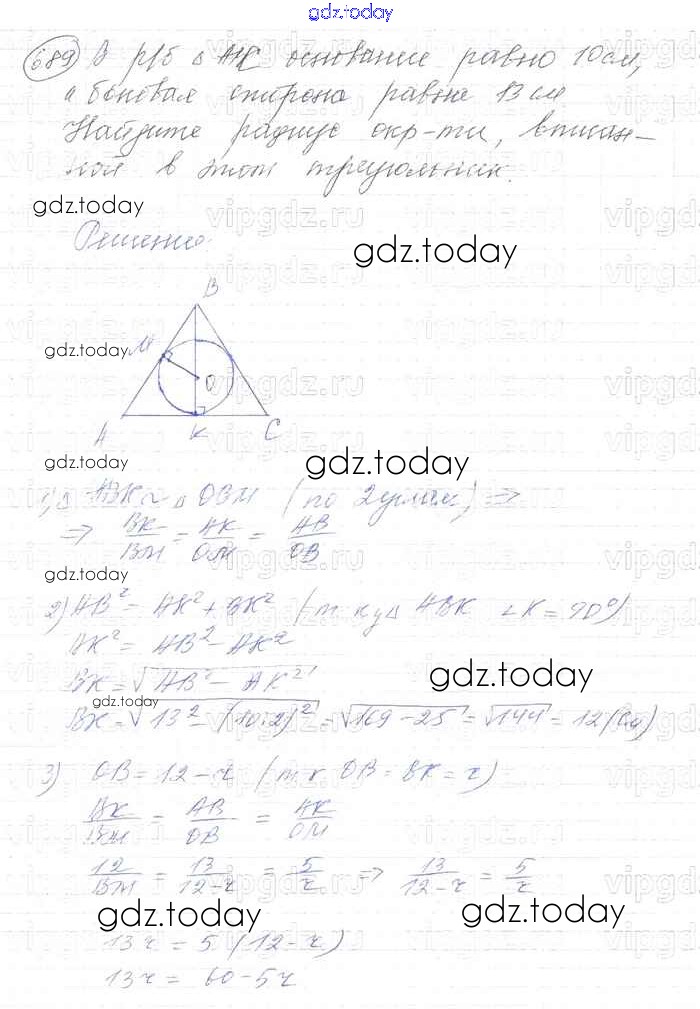 gdz.today
689) В р/б △ АВС основание равно 10 см,
а боковая сторона равна 13 см
Найдите радиус окр-ти, вписан-
ной в этот треугольник.
gdz.today
Решение:
gdz.today
B
gdz.today
M
O
A K C
gdz.today
gdz.today
1) △ ABK ~ △ OBM (по 2 углам) ⇒
⇒ BK/BM = AK/OM = AB/OB
gdz.today
2) AB² = AK² + BK² (т. к. у △ ABK ∠K = 90°)
BK² = AB² - AK²
gdz.today
BK = √AB² - AK²
gdz.today
BK = √13² - (10:2)² = √169 - 25 = √144 = 12 (см)
3) OB = 12 - r (т. к. OB = BK - r)
BK/BM = AB/OB = AK/OM
12/BM = 13/12-r = 5/r ⇒ 13/12-r = 5/r
gdz.today gdz.today
13r = 5 (12 - r)
13r = 60 - 5r